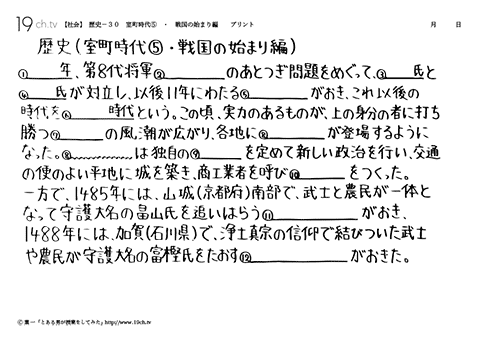 19ch.tv 【社会】 歴史－３０ 室町時代⑤ ・ 戦国の始まり編 プリント 月 日
歴史(室町時代⑤・戦国の始まり編)
①____年、第8代将軍②________のあとつぎ問題をめぐって、③____氏と
④____氏が対立し、以後11年にわたる⑤________がおき、これ以後の
時代を⑥______時代という。この頃、実力のあるものが、上の身分の者に打ち
勝つ⑦______の風潮が広がり、各地に⑧________が登場するように
なった。⑧________は独自の⑨______を定めて新しい政治を行い、交通
の便のよい平地に城を築き、商工業者を呼び⑩________をつくった。
一方で、1485年には、山城(京都府)南部で、武士と農民が一体と
なって守護大名の畠山氏を追いはらう⑪__________がおき、
1488年には、加賀(石川県)で、浄土真宗の信仰で結びついた武士
や農民が守護大名の富樫氏をたおす⑫__________がおきた。
Ⓒ 葉一「とある男が授業をしてみた」http://www.19ch.tv